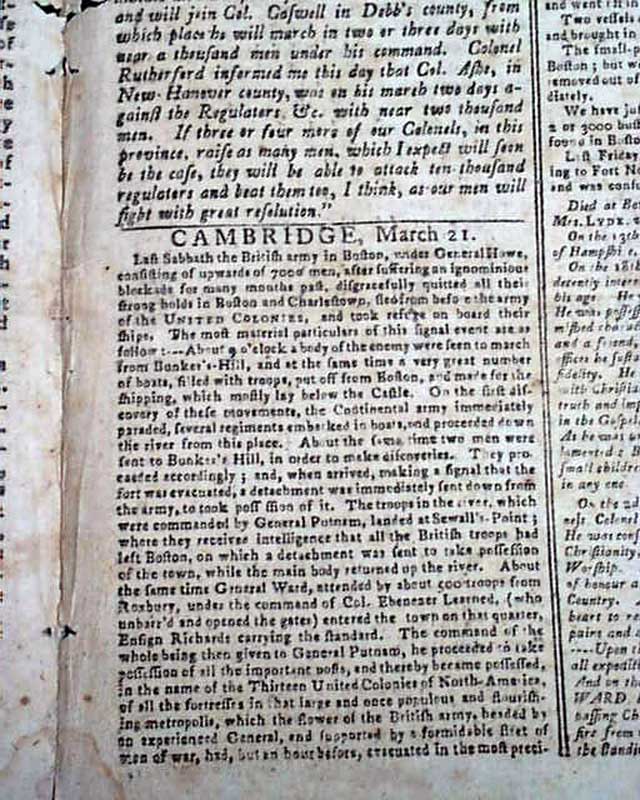 and will join Col. Caswell in Dobb's county, from
which place he will march in two or three days with
near a thousand men under his command. Colonel
Rutherford informed me this day that Col. Aſhe, in
New-Hanover county, was on his march two days a-
gainſt the Regulators, &c. with near two thouſand
men. If three or four more of our Colonels, in this
province, raiſe as many men, which I expect will ſoon
be the caſe, they will be able to attack ten thouſand
regulators and beat them too, I think, as our men will
fight with great reſolution."
CAMBRIDGE, March 21.
Laſt Sabbath the Britiſh army in Boſton, under General Howe,
conſiſting of upwards of 7000 men, after ſuffering an ignominious
blockade for many months paſt, diſgracefully quitted all their
ſtrong holds in Boſton and Charleſtown, fled from before the army
of the UNITED COLONIES, and took refuge on board their
ſhips. The moſt material particulars of this ſignal event are as
follow:---About 9 o'clock a body of the enemy were ſeen to march
from Bunker's-Hill, and at the ſame time a very great number
of boats, filled with troops, put off from Boſton, and made for the
ſhipping, which moſtly lay below the Caſtle. On the firſt diſ-
covery of theſe movements, the Continental army immediately
paraded, ſeveral regiments embarked in boats, and proceeded down
the river from this place. About the ſame time two men were
ſent to Bunker's Hill, in order to make diſcoveries. They pro-
ceeded accordingly; and, when arrived, making a ſignal that the
fort was evacuated, a detachment was immediately ſent down from
the army, to took poſſ ſſion of it. The troops in the river, which
were commanded by General Putnam, landed at Sewall's-Point;
where they received intelligence that all the Britiſh troops had
left Boſton, on which a detachment was ſent to take poſſeſſion
of the town, while the main body returned up the river. About
the ſame time General Ward, attended by about 500 troops from
Roxbury, under the command of Col. Ebenezer Learned, (who
unbarr'd and opened the gates) entered the town on that quarter,
Enſign Richards carrying the ſtandard. The command of the
whole being then given to General Putnam, he proceeded to take
poſſeſſion of all the important poſts, and thereby became poſſeſſed,
in the name of the Thirteen United Colonies of North-America,
of all the fortreſſes in that large and once populous and flouriſh-
ing metropolis, which the flower of the Britiſh army, headed by
an experienced General, and ſupported by a formidable fleet of
men of war, had, but an hour before, evacuated in the moſt preci-
Two veſſels
and brought in
The ſmall-p
Boſton; but w
removed out of
diately.
We have juſ
2 or 3000 buſh
found in Boſto
Laſt Friday
ing to Fort N
and was conſ
Died at Bo
Mrs. LYDE,
On the 13th
of Hampſhi e,
On the 18th
decently interr
his age. He
He was poſſeſſ
and a friend,
offices he ſuſt
fidelity. He
with Chriſtia
truth and imp
in the Goſpel
As he was
lamented: B
ſmall children
in any one
On the 2d
neſs Colonel
He was conf
Chriſtianity.
Worſhip.
of honour a
Country.
heart to re
pairs and
----Upon t
all expediti
And on th
WARD
paſſing Ch
fire from
the ſtandi